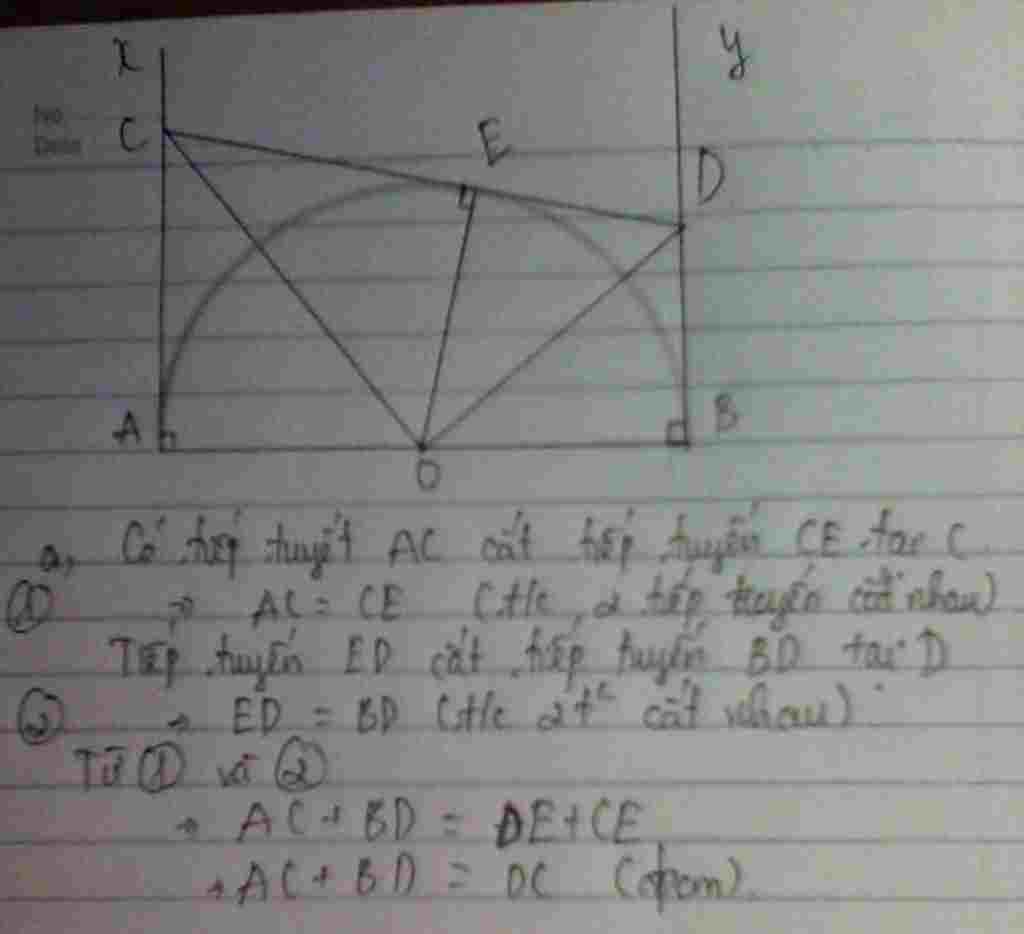 x
y
No
Date
C
E
D
A
B
O
a, Có tiếp tuyết AC cắt tiếp tuyến CE tại C
① => AC = CE (t/c 2 tiếp tuyến cắt nhau)
Tiếp tuyến ED cắt tiếp tuyến BD tại D
② => ED = BD (t/c 2 tt cắt nhau)
Từ ① và ②
=> AC + BD = DE + CE
=> AC + BD = DC (đpcm).